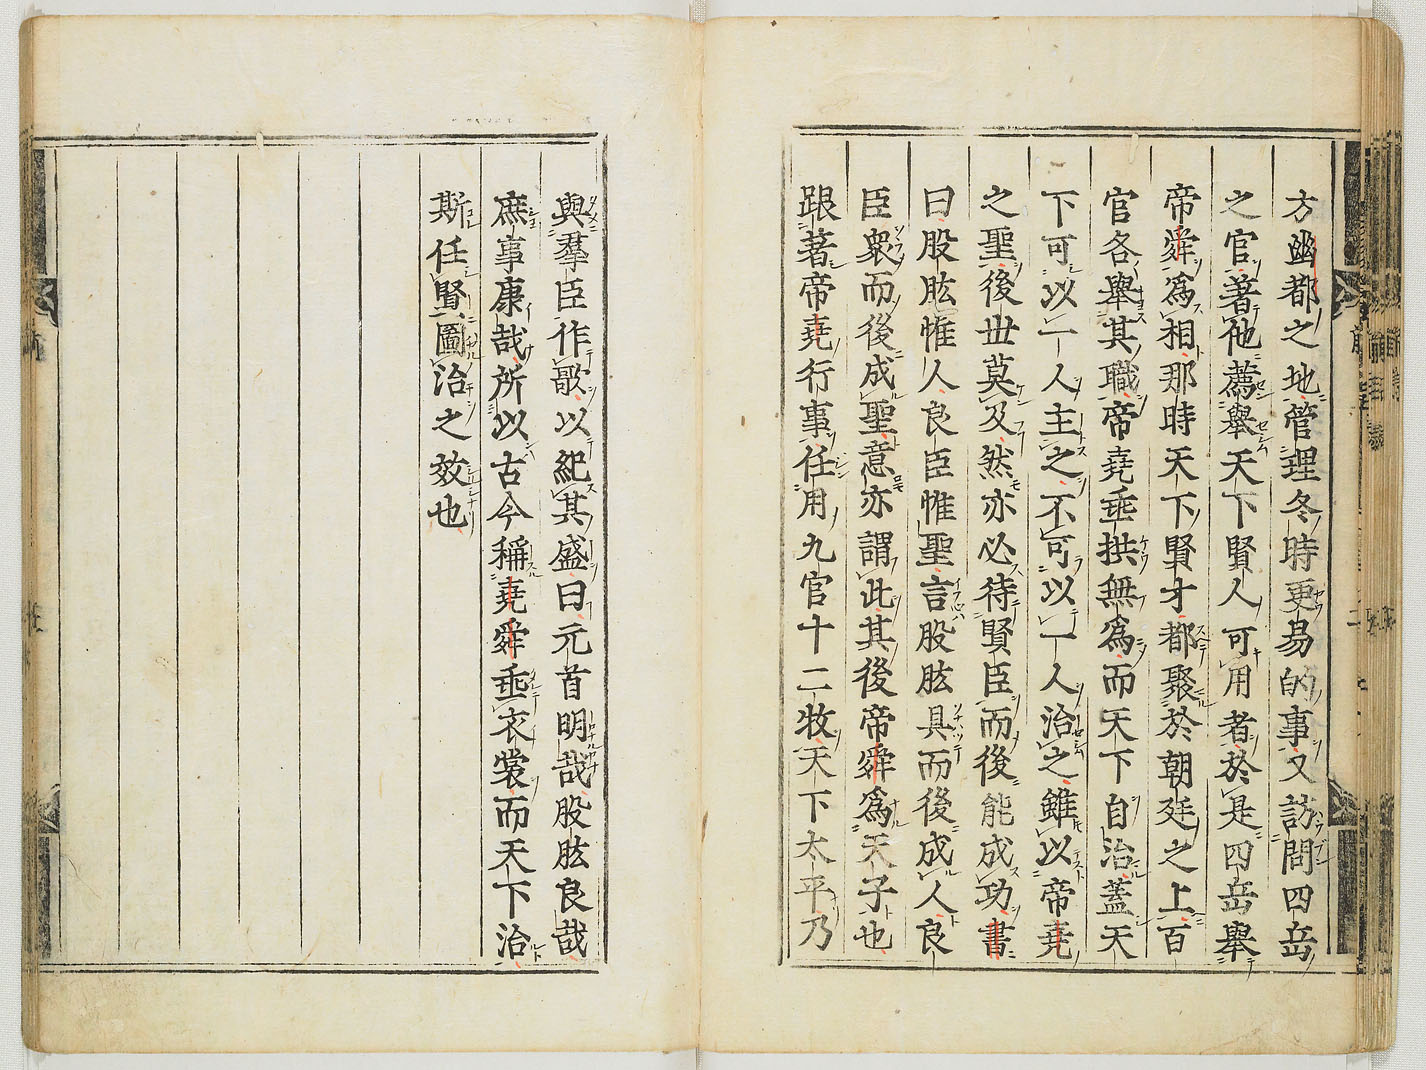 方幽都之地管理冬時更易的事又訪問四岳
之官著他薦舉天下賢人可用者於是四岳舉
帝舜爲相那時天下賢才都聚於朝廷之上百
官各舉其職帝堯垂拱無爲而天下自治蓋天
下可以一人主之不可以一人治之雖以帝堯
之聖後世莫及然亦必待賢臣而後能成功書
曰股肱惟人良臣惟聖言股肱具而後成人良
臣衆而後成聖意亦謂此其後帝舜爲天子也
跟著帝堯行事任用九官十二牧天下太平乃
與羣臣作歌以紀其盛曰元首明哉股肱良哉
庶事康哉所以古今稱堯舜垂衣裳而天下治
斯任賢圖治之效也